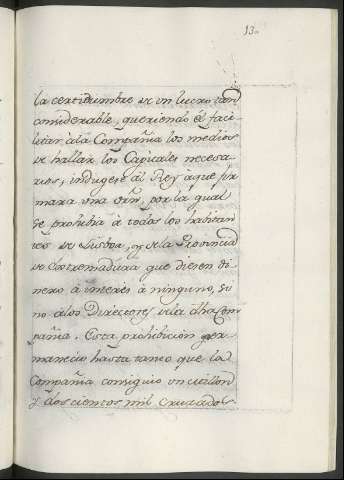 13.
la certidumbre de un lucro tan
considerable, queriendo él faci-
litar à la Compañia los medios
de hallar los Capitales necesa-
rios, indugese àl Rey àque fir-
mara una orñ, por la qual
se prohibia à todos los habitan-
tes de Lisboa, y de la Provincia
de Extremadura que diesen di-
nero à interès à ninguno, si
no àlos Directores dela dha Com-
pañia. Esta prohibicion per-
manecio hasta tanto que la
Compañia consiguio un millon
y doscientos mil Cruzados